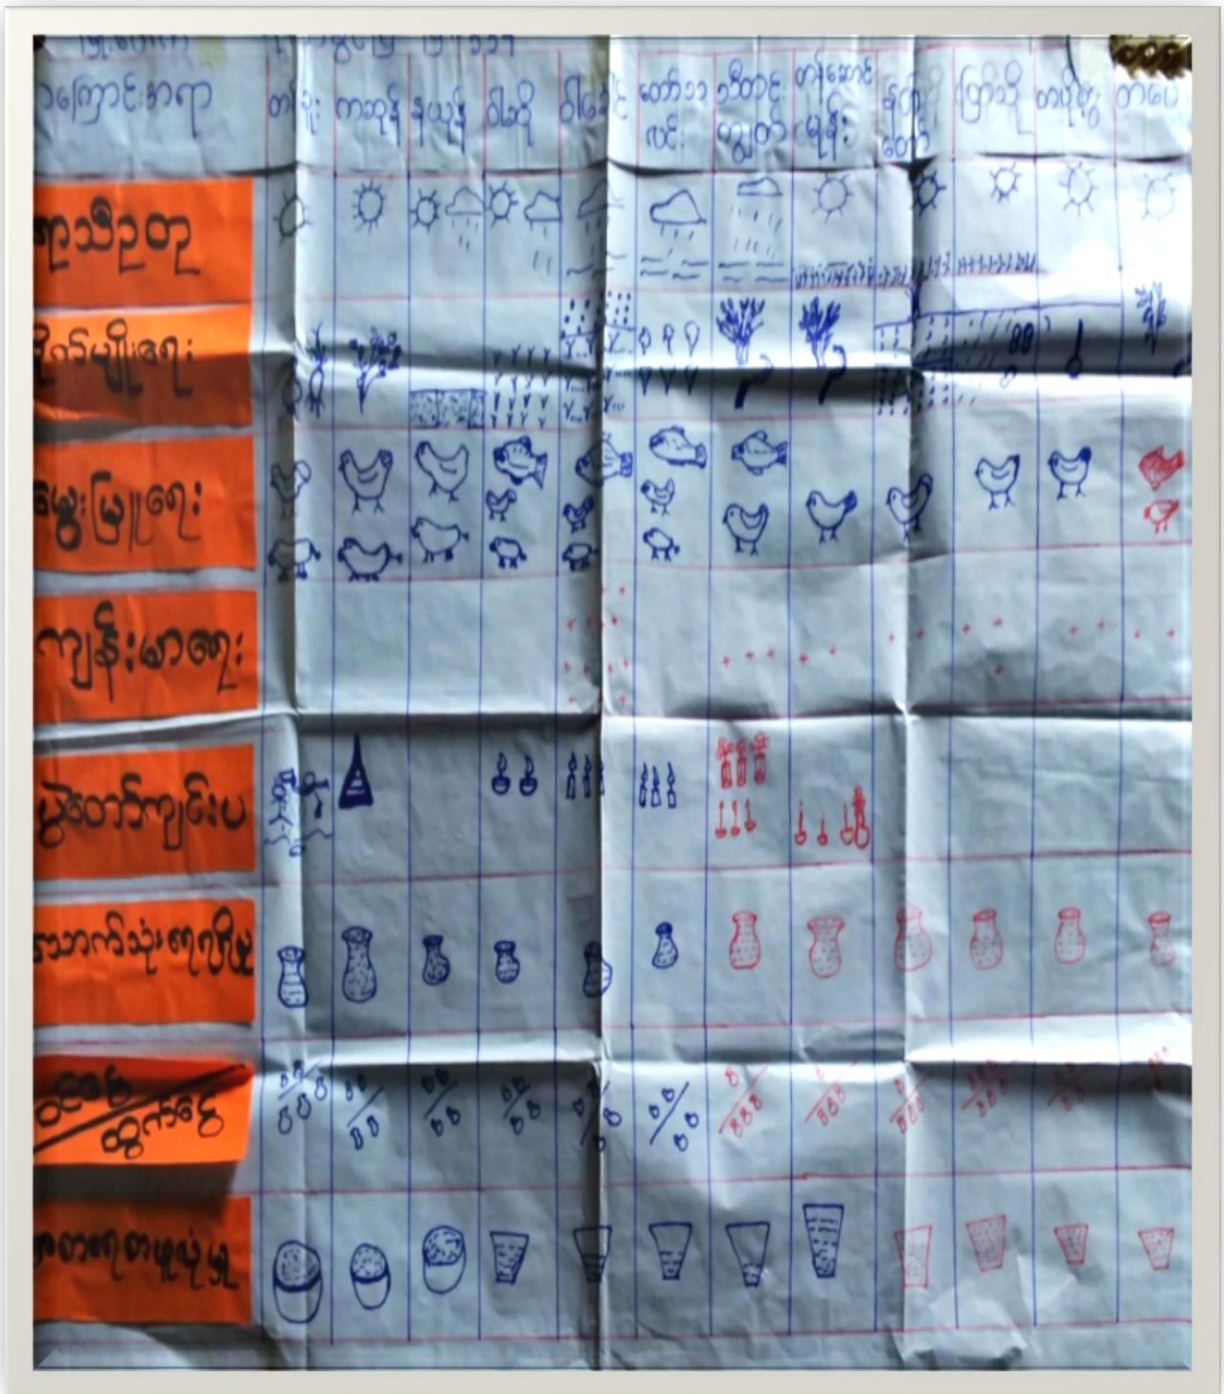 ကြောင်းအရာ တန်ခူး ကဆုန် နယုန် ဝါဆို ဝါခေါင် တော်သလင်း သီတင်းကျွတ် တန်ဆောင်မုန်း နတ်တော် ပြာသို တပို့တွဲ တပေ
ရာသီဥတု
စိုက်ပျိုးရေး
မွေးမြူရေး
ကျန်းမာရေး
ပွဲတော်ကျင်းပ
သောက်သုံးရေရရှိမှု
ဝင်ငွေ
ထွက်ငွေ
အစာရေစာဖူလုံမှု